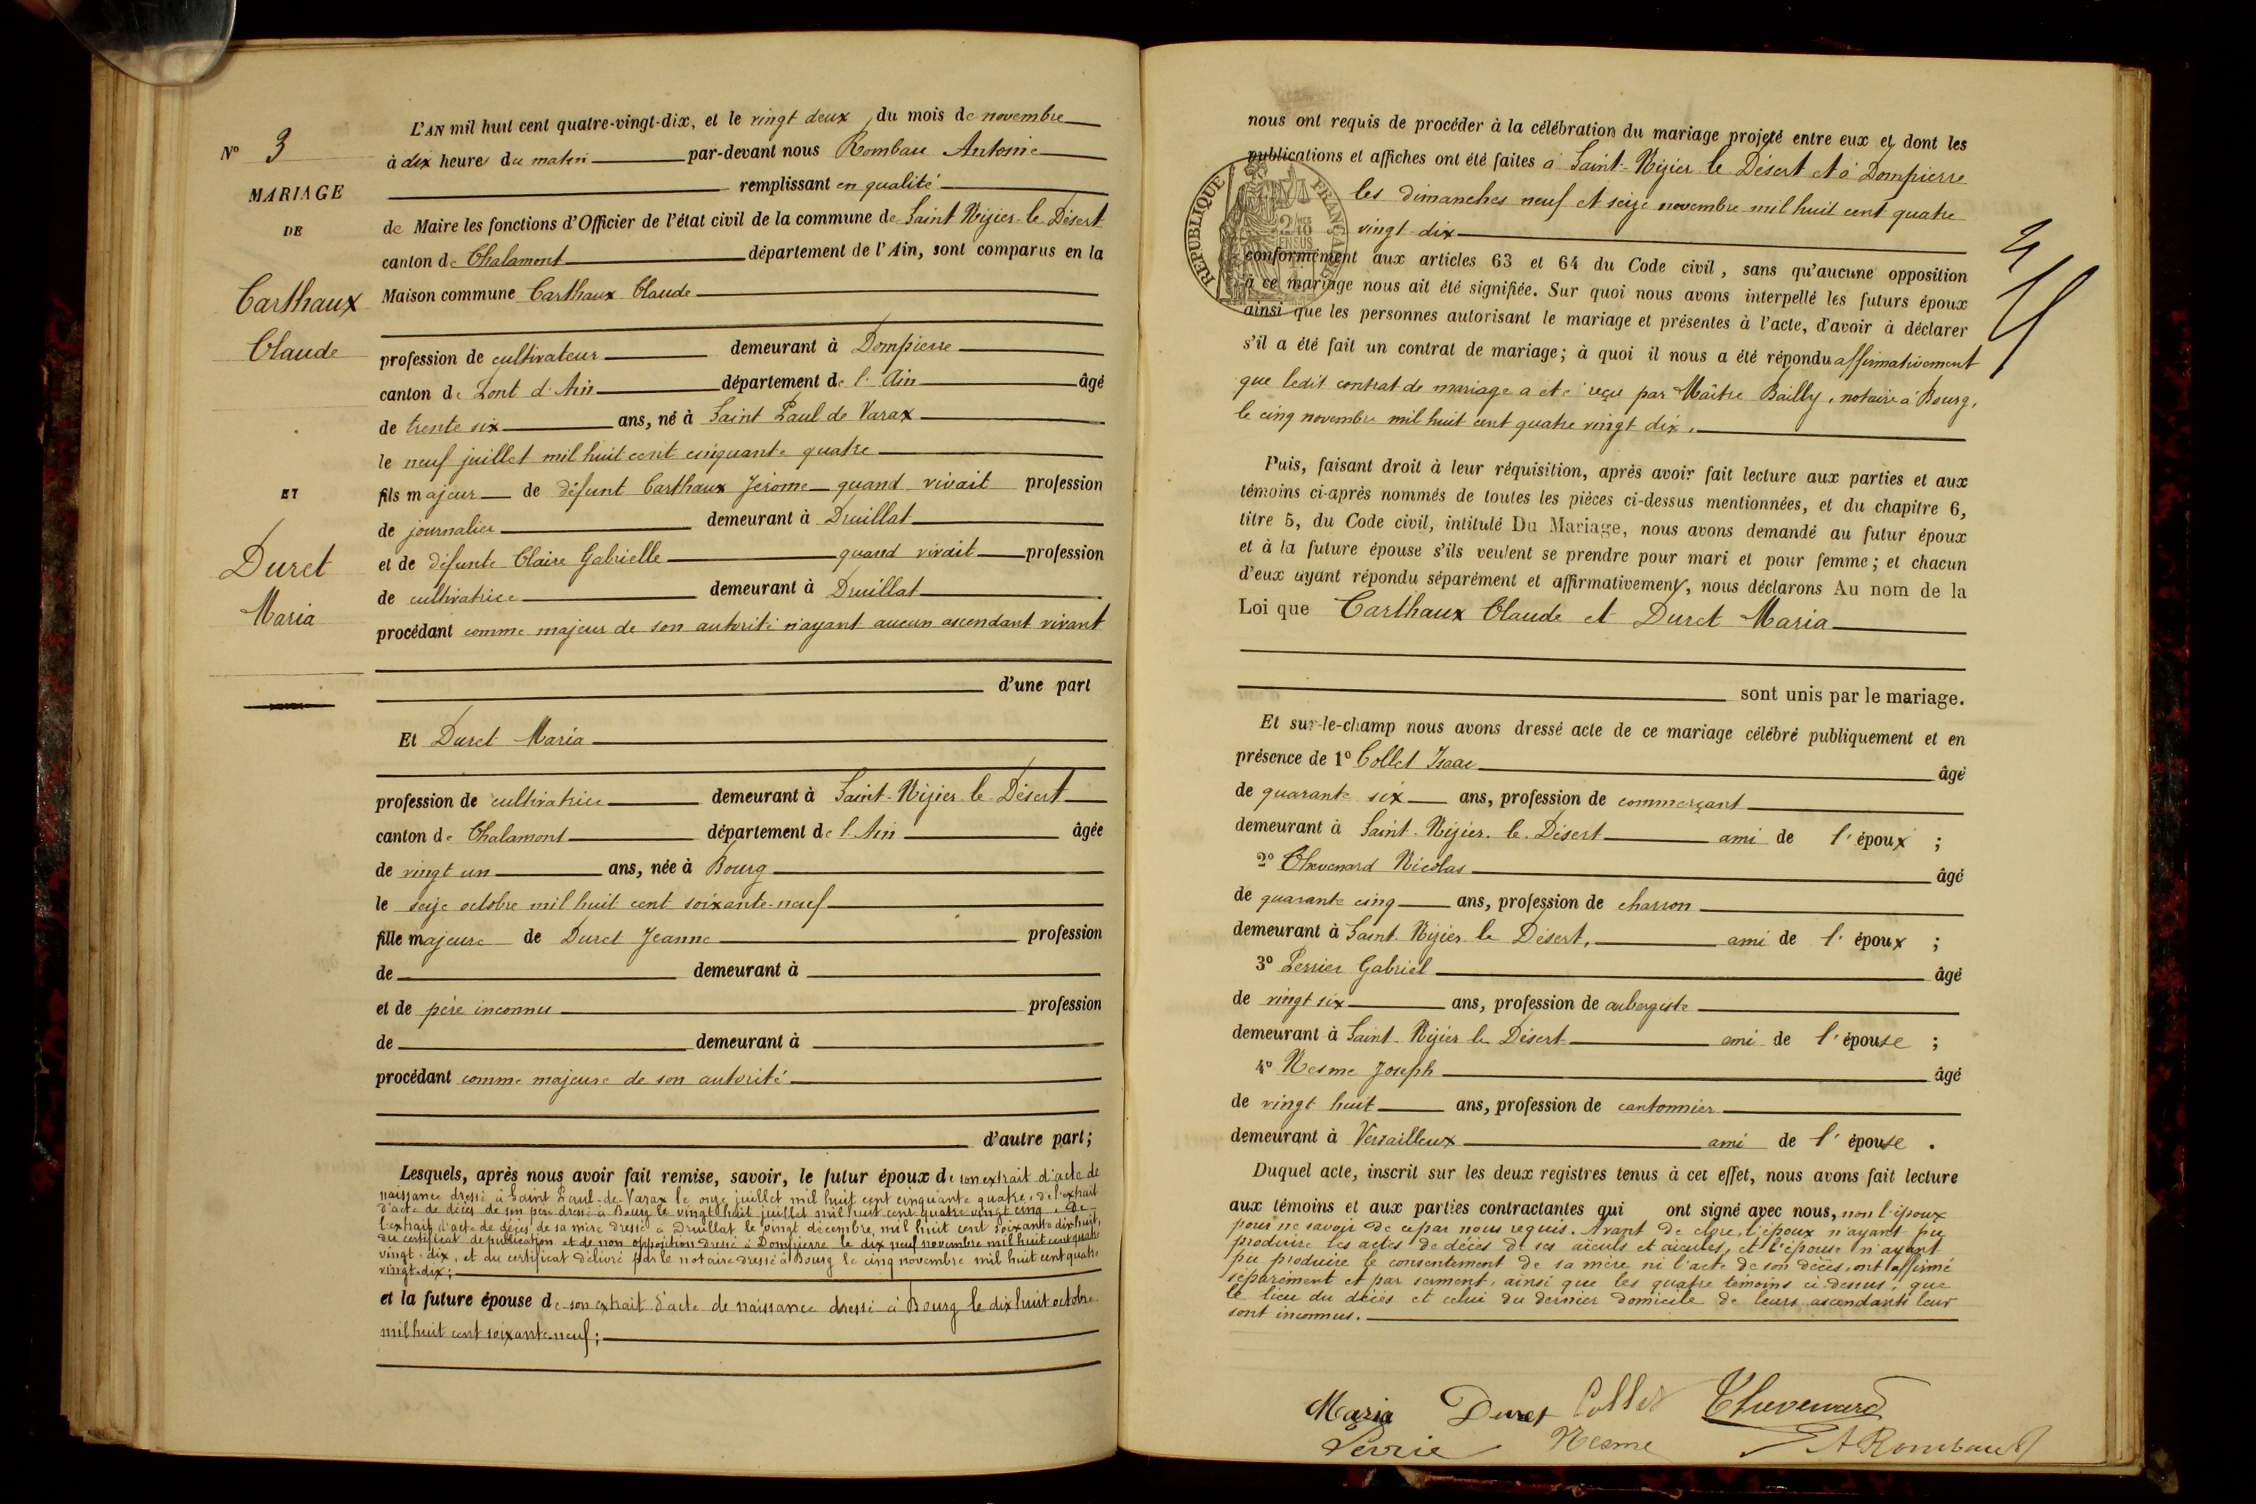 N° 3
MARIAGE
DE
Carthaux
Claude
ET
Duret
Maria
L'AN mil huit cent quatre-vingt-dix, et le vingt deux du mois de novembre
à dix heures du matin par-devant nous Rombau Antoine
remplissant en qualité
de Maire les fonctions d'Officier de l'état civil de la commune de Saint Nizier le Désert
canton de Chalamont département de l'Ain, sont comparus en la
Maison commune Carthaux Claude
profession de cultivateur demeurant à Dompierre
canton de Pont d'Ain département de l'Ain âgé
de trente six ans, né à Saint Paul de Varax
le neuf juillet mil huit cent cinquante quatre
fils majeur de défunt Carthaux Jérôme quand vivait profession
de journalier demeurant à Druillat
et de défunte Claire Gabrielle quand vivait profession
de cultivatrice demeurant à Druillat
procédant comme majeur de son autorité n'ayant aucun ascendant vivant
d'une part
Et Duret Maria
profession de cultivatrice demeurant à Saint-Nizier le Désert
canton de Chalamont département de l'Ain âgée
de vingt un ans, née à Bourg
le seize octobre mil huit cent soixante-neuf
fille majeure de Duret Jeanne profession
de demeurant à
et de père inconnu profession
de demeurant à
procédant comme majeure de son autorité
d'autre part;
Lesquels, après nous avoir fait remise, savoir, le futur époux de son extrait d'acte de
naissance dressé à Saint Paul-de-Varax le onze juillet mil huit cent cinquante quatre, de l'extrait
d'acte de décès de son père dressé à Bourg le vingt huit juillet mil huit cent quatre vingt cinq, De
l'extrait d'acte de décès de sa mère dressé à Druillat le vingt décembre mil huit cent soixante dix huit,
du certificat de publication et de non opposition dressé à Dompierre le dix neuf novembre mil huit cent quatre
vingt-dix, et du certificat délivré par le notaire dressé à Bourg le cinq novembre mil huit cent quatre
vingt-dix;
et la future épouse de son extrait d'acte de naissance dressé à Bourg le dix huit octobre
mil huit cent soixante-neuf;
nous ont requis de procéder à la célébration du mariage projeté entre eux et dont les
publications et affiches ont été faites à Saint-Nizier le Désert et à Dompierre
les dimanches neuf et seize novembre mil huit cent quatre
vingt dix
RÉPUBLIQUE FRANÇAISE
conformément aux articles 63 et 64 du Code civil, sans qu'aucune opposition
à ce mariage nous ait été signifiée. Sur quoi nous avons interpellé les futurs époux
ainsi que les personnes autorisant le mariage et présentes à l'acte, d'avoir à déclarer
s'il a été fait un contrat de mariage; à quoi il nous a été répondu affirmativement
que ledit contrat de mariage a été reçu par Maître Bailly, notaire à Bourg,
le cinq novembre mil huit cent quatre vingt dix.
Puis, faisant droit à leur réquisition, après avoir fait lecture aux parties et aux
témoins ci-après nommés de toutes les pièces ci-dessus mentionnées, et du chapitre 6,
titre 5, du Code civil, intitulé Du Mariage, nous avons demandé au futur époux
et à la future épouse s'ils veulent se prendre pour mari et pour femme; et chacun
d'eux ayant répondu séparément et affirmativement, nous déclarons Au nom de la
Loi que Carthaux Claude et Duret Maria
sont unis par le mariage.
Et sur-le-champ nous avons dressé acte de ce mariage célébré publiquement et en
présence de 1° Collet Isaac âgé
de quarante six ans, profession de commerçant
demeurant à Saint-Nizier-le-Désert ami de l'époux ;
2° Thevenard Nicolas âgé
de quarante cinq ans, profession de charron
demeurant à Saint Nizier le Désert, ami de l'époux ;
3° Perrier Gabriel âgé
de vingt six ans, profession de aubergiste
demeurant à Saint-Nizier le Désert ami de l'épouse ;
4° Nesme Joseph âgé
de vingt huit ans, profession de cantonnier
demeurant à Versailleux ami de l'épouse .
Duquel acte, inscrit sur les deux registres tenus à cet effet, nous avons fait lecture
aux témoins et aux parties contractantes qui ont signé avec nous, non l'époux
pour ne savoir de ce par nous requis. Avant de clore, l'époux n'ayant pu
produire les actes de décès de ses aïeuls et aïeules, et l'épouse n'ayant
pu produire le consentement de sa mère ni l'acte de son décès, ont affirmé
séparément et par serment, ainsi que les quatre témoins ci-dessus, que
le lieu du décès et celui du dernier domicile de leurs ascendants leur
sont inconnus.
Maria Duret Collet Thevenard
Perrie Nesme A Rombau